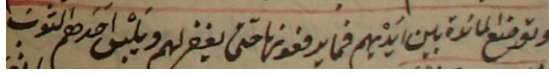 وتوضع المائدة بين ايديهم فما يرفعونها حتى يغفر لهم ويلبس احدهم الثوب